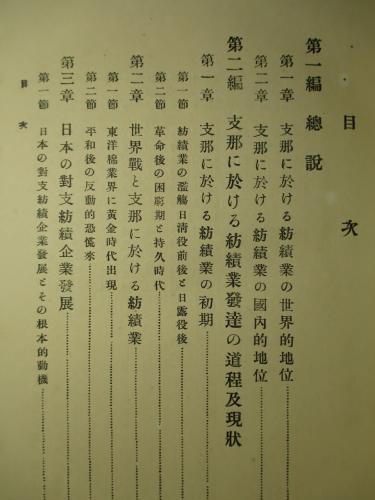 目次
第一編 總說
第一章 支那に於ける紡績業の世界的地位
第二章 支那に於ける紡績業の國內的地位
第二編 支那に於ける紡績業發達の道程及現狀
第一章 支那に於ける紡績業の初期
第一節 紡績業の濫觴日淸役前後と日露役後
第二節 革命後の困窮期と持久時代
第二章 世界戰と支那に於ける紡績業
第一節 東洋棉業界に黃金時代出現
第二節 平和後の反動的恐慌來
第三章 日本の對支紡績企業發展
第一節 日本の對支紡績企業發展とその根本的動機
目次